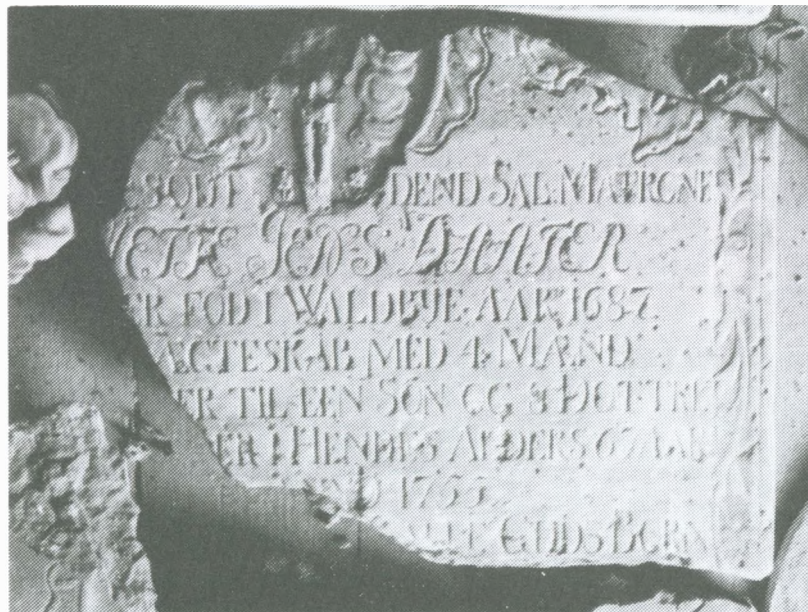 DEND SAL. MATRONE
JENS DAATER
FÖD I WALDBYE AAR 1687
ÆGTESKAB MED 4 MÆND
ER TIL EEN SÖN OG 3 DÖTTRE
ER I HENDES ALDERS 67 AAR
1755
ALLE GUDS BÖRN